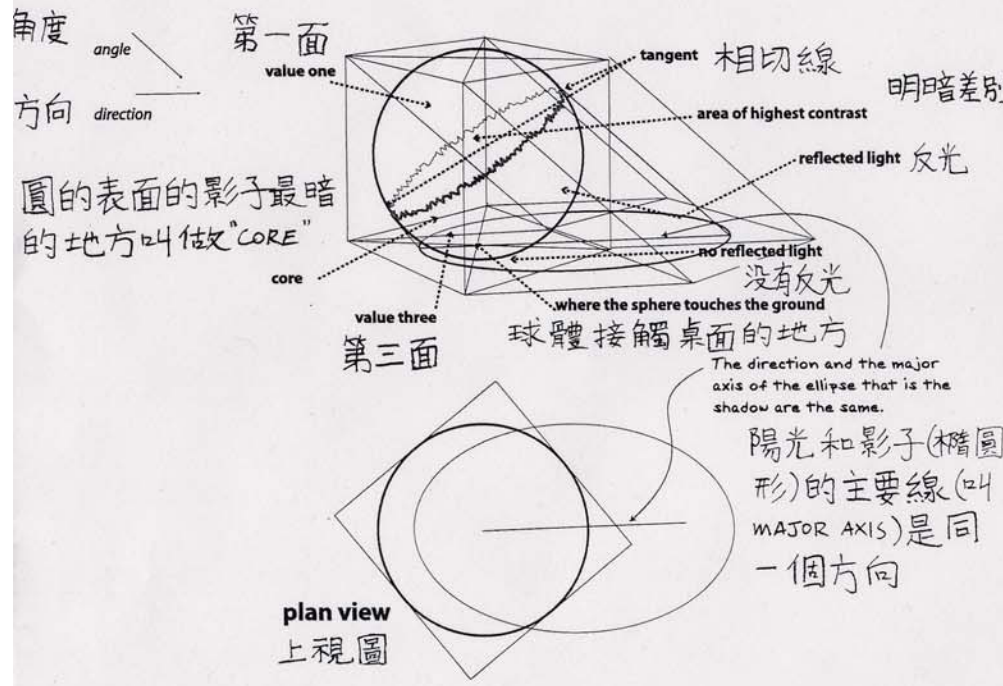 角度
angle
方向
direction
第一面
value one
tangent
相切線
明暗差別
area of highest contrast
reflected light
反光
圓的表面的影子最暗
的地方叫做"CORE"
core
no reflected light
没有反光
value three
第三面
where the sphere touches the ground
球體接觸桌面的地方
The direction and the major
axis of the ellipse that is the
shadow are the same.
陽光和影子(橢圓
形)的主要線(叫
MAJOR AXIS)是同
一個方向
plan view
上視圖